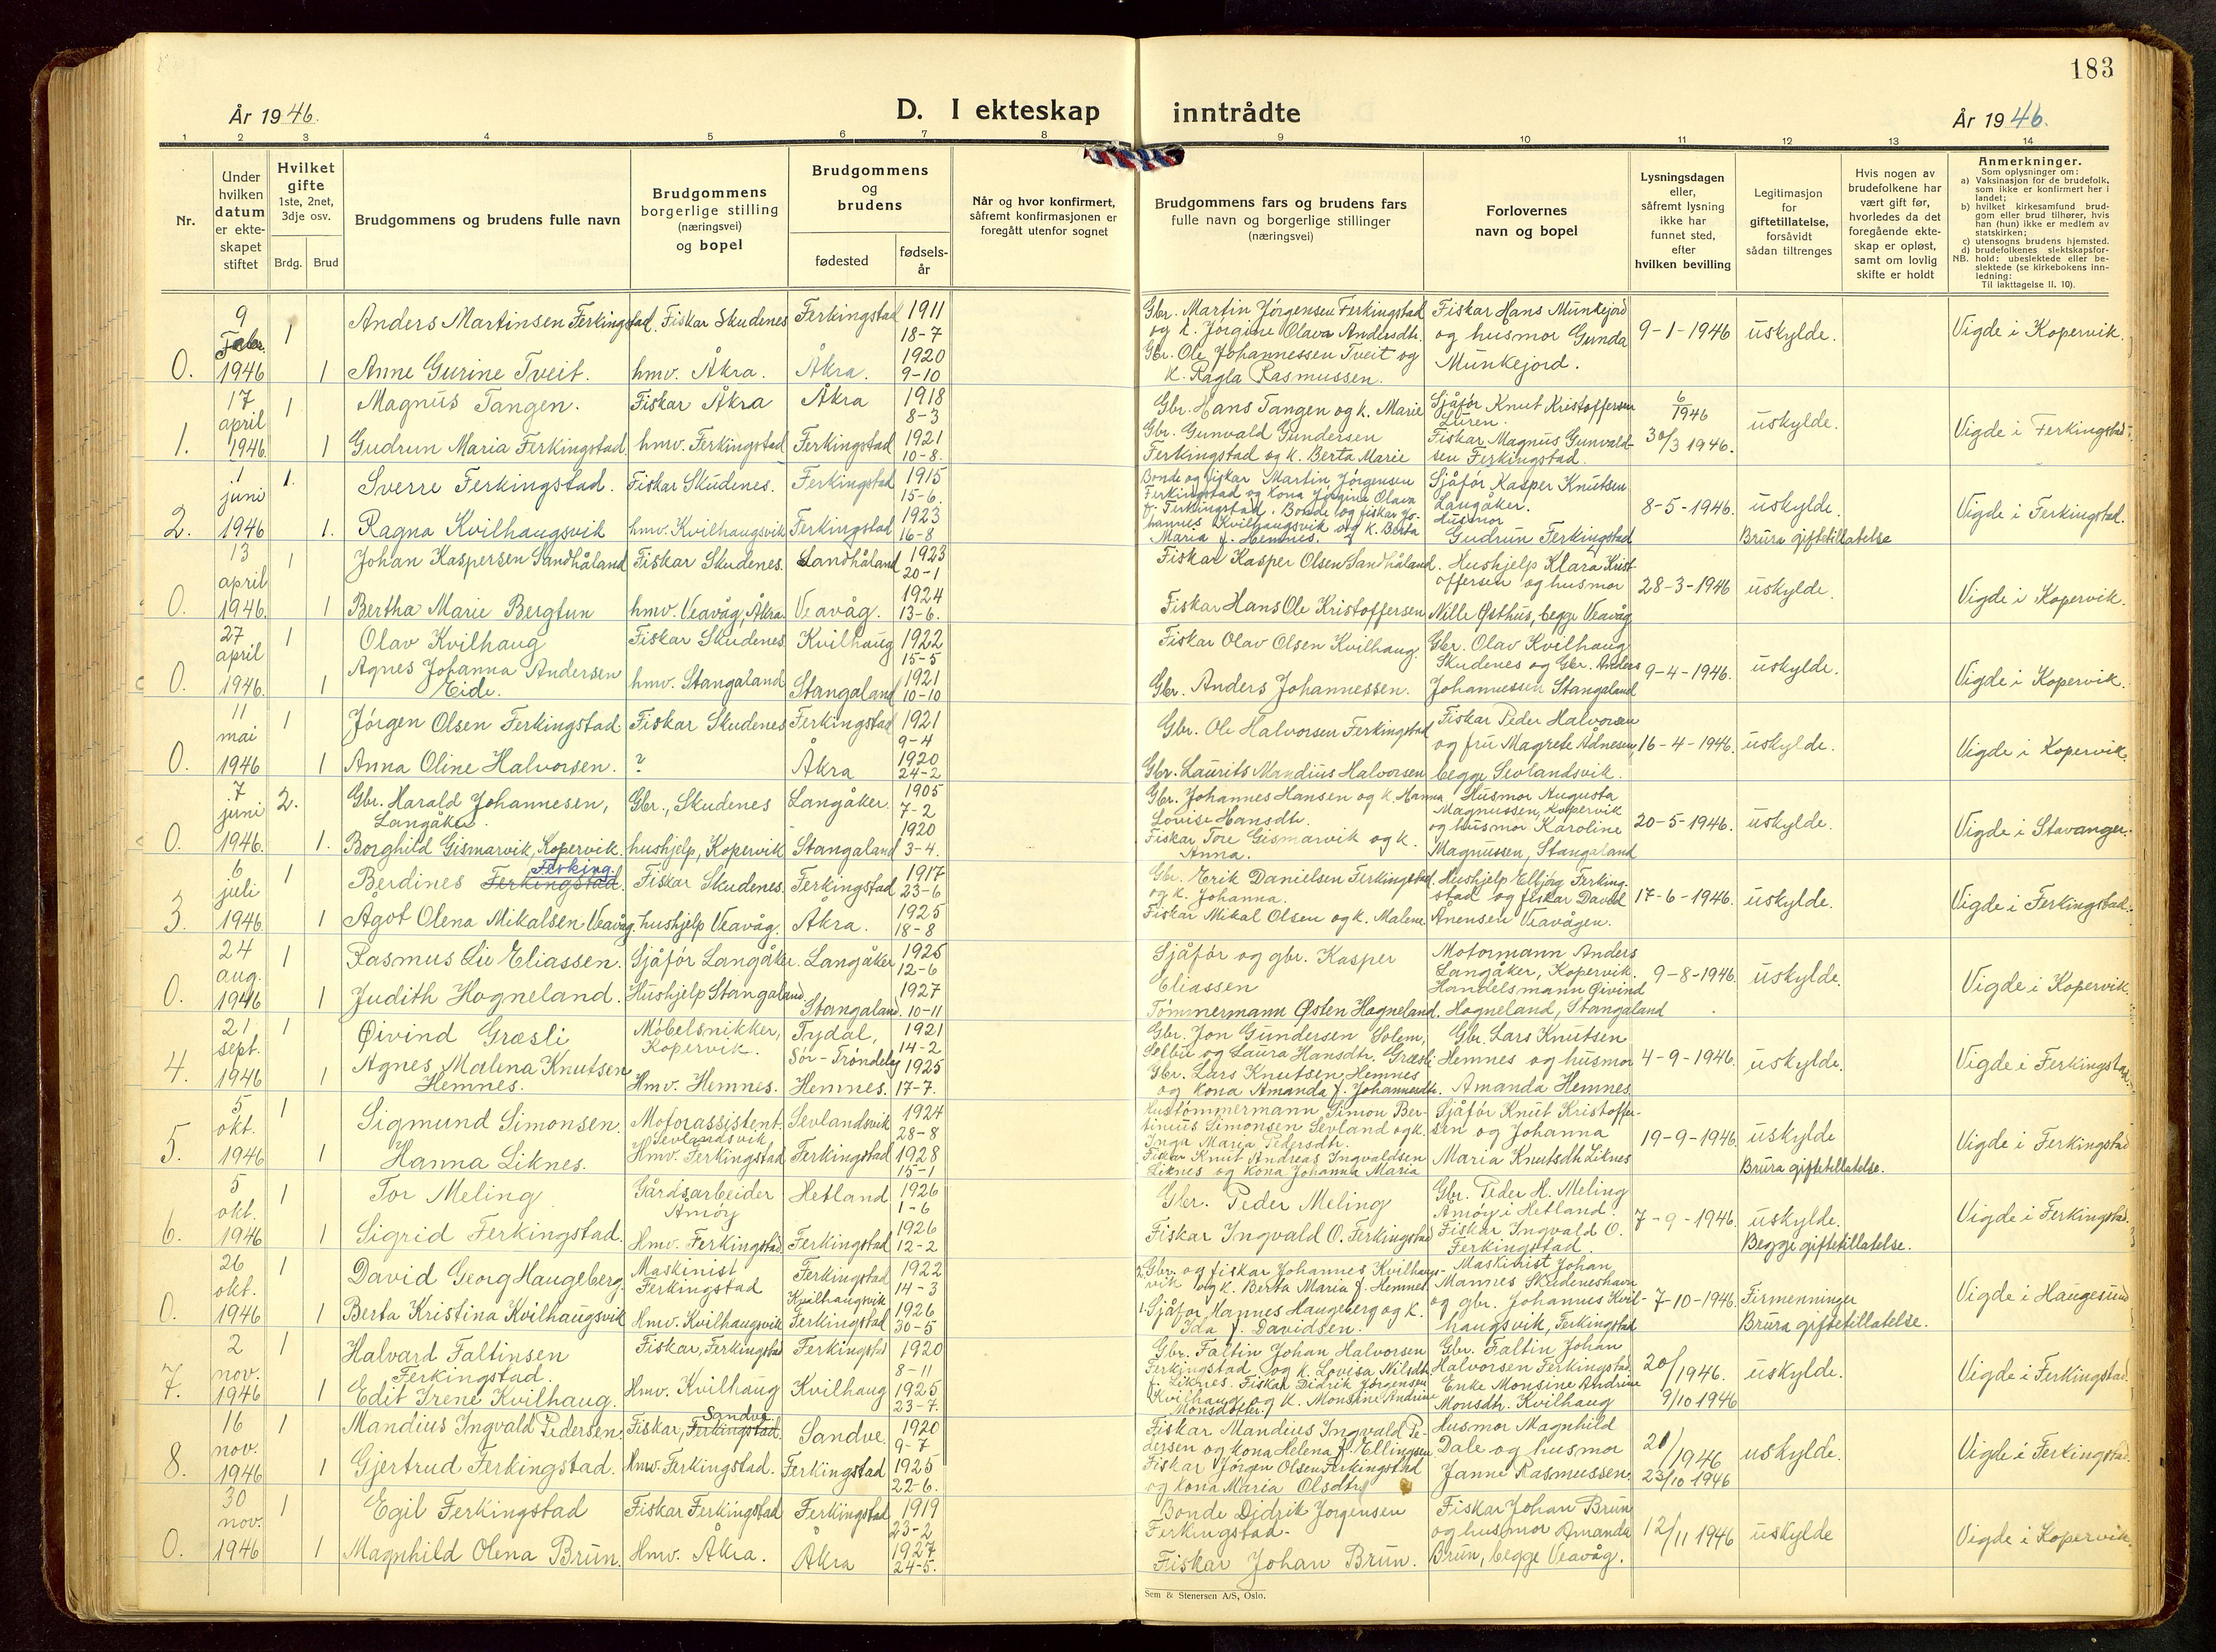 183
År 1946.
D. I ekteskap inntrådte
År 1946.
1 2 3 4 5 6 7 8 9 10 11 12 13 14
Nr.
Under hvilken datum er ekte-skapet stiftet
Hvilket gifte 1ste, 2net, 3dje osv.
Brdg. Brud
Brudgommens og brudens fulle navn
Brudgommens borgerlige stilling (næringsvei) og bopel
Brudgommens og brudens
fødested
fødsels-år
Når og hvor konfirmert, såfremt konfirmasjonen er foregått utenfor sognet
Brudgommens fars og brudens fars fulle navn og borgerlige stillinger (næringsvei)
Forlovernes navn og bopel
Lysningsdagen eller, såfremt lysning ikke har funnet sted, efter hvilken bevilling
Legitimasjon for giftetillatelse, forsåvidt sådan tiltrenges
Hvis nogen av brudefolkene har vært gift før, hvorledes da det foregående ekte-skap er opløst, samt om lovlig skifte er holdt
Anmerkninger.
Som oplysninger om:
a) Vaksinasjon for de brudefolk, som ikke er konfirmert her i landet;
b) hvilket kirkesamfund brud-gom eller brud tilhører, hvis han (hun) ikke er medlem av statskirken;
c) utensogns brudens hjemsted.
d) brudefolkenes slektskapsfor-hold: ubeslektede eller be-slektede (se kirkebokens inn-ledning:
NB. Til iakttagelse II. 10).
9 Febr. 1 Anders Martinsen Ferkingstad. Fiskar Skudenes Ferkingstad 1911 18-7
0. 1946 1 Anne Gurine Tveit. hmv. Åkra. Åkra. 1920 9-10
Gbr. Martin Jørgensen Ferkingstad og k. Jørgine Olava Andersdtr.
Gbr. Ole Johannessen Tveit og k. Ragla Rasmussen.
Fiskar Hans Munkejord og husmor Gunda Munkejord.
9-1-1946 uskylde. Vigde i Kopervik.
17 april 1 Magnus Tangen. Fiskar Åkra Åkra 1918 8-3
1. 1946 1 Gudrun Maria Ferkingstad hmv. Ferkingstad Ferkingstad 1921 10-8.
Gbr. Hans Tangen og k. Marie
Gbr. Gunvald Gundersen Ferkingstad og k. Berta Marie
Sjåfør Knut Kristoffersen Luren.
Fiskar Magnus Gunvald-sen Ferkingstad.
6/1946 30/3 1946. uskylde. Vigde i Ferkingstad.
1 juni 1. Sverre Ferkingstad. Fiskar Skudenes. Ferkingstad 1915 15-6.
2. 1946 1. Ragna Kvilhaugsvik hmv. Kvilhaugsvik Ferkingstad 1923 16-8
Bonde og fiskar Martin Jørgensen Ferkingstad og kona Jørgine Olava f. Ferkingstad. Bonde og fiskar Jo-hannes Kvilhaugsvik og k. Berta Maria f. Hemnes.
Sjåfør Kasper Knutsen Langåker.
Husmor Gudrun Ferkingstad
8-5-1946. uskylde. Brura giftetillatelse Vigde i Ferkingstad.
13 april 1 Johan Kaspersen Sandhåland Fiskar Skudenes. Sandhåland 1923 20-1
0. 1946. 1 Bertha Marie Bergtun hmv. Veavåg, Åkra. Veavåg. 1924 13-6.
Fiskar Kasper Olsen Sandhåland.
Fiskar Hans Ole Kristoffersen
Hushjelp Klara Krist-offersen og husmor Nille Østhus, begge Veavåg
28-3-1946 uskylde. Vigde i Kopervik.
27 april 1 Olav Kvilhaug Fiskar Skudenes Kvilhaug 1922 15-5
0. 1946. 1 Agnes Johanna Andersen Eide. hmv. Stangaland Stangaland 1921 10-10
Fiskar Olav Olsen Kvilhaug.
Gbr. Anders Johannessen.
Gbr. Olav Kvilhaug Skudenes og Gbr. Anders Johannessen Stangaland
9-4-1946. uskylde. Vigde i Kopervik.
11 mai 1 Jørgen Olsen Ferkingstad. Fiskar Skudenes Ferkingstad 1921 9-4
0. 1946 1 Anna Oline Halvorsen. ? Åkra 1920 24-2
Gbr. Ole Halvorsen Ferkingstad
Gbr. Laurits Mandius Halvorsen
Fiskar Peder Halvorsen og fru Magrete Ådnesen, begge Sevlandsvik.
16-4-1946. uskylde. Vigde i Kopervik.
7 juni 2. Gbr. Harald Johannesen, Langåker. Gbr., Skudenes Langåker. 1905 7-2
0. 1946. 1. Borghild Gismarvik, Kopervik. hushjelp, Kopervik Stangaland 1920 3-4.
Gbr. Johannes Hansen og k. Hanna Lovise Hansdtr.
Fiskar Tore Gismarvik og k. Anna.
Husmor Augusta Magnussen, Kopervik og husmor Karoline Magnussen, Stangaland
20-5-1946. uskylde. Vigde i Stavanger.
6 juli 1 Berdines Ferkingstad. Ferking. Fiskar Skudenes. Ferkingstad 1917 23-6
3. 1946 1 Agot Olena Mikalsen Veavåg. hushjelp Veavåg. Åkra. 1925 18-8
Gbr. Erik Danielsen Ferkingstad. og k. Johanna.
Fiskar Mikal Olsen og k. Malene
Hushjelp Elbjørg Ferking-stad og fiskar David Anensen Veavågen.
17-6-1946. uskylde. Vigde i Ferkingstad.
24 aug. 1 Rasmus Lie Eliassen. Sjåfør Langåker. Langåker 1925 12-6
0. 1946 1 Judith Hogneland. Hushjelp Stangaland. Stangaland. 1927 10-11
Sjåfør og gbr. Kasper Eliassen
Tømmermann Østen Hogneland.
Motormann Anders Langåker, Kopervik.
Handelsmann Øivind Hogneland, Stangaland
9-8-1946. uskylde. Vigde i Kopervik.
21 sept. 1 Øivind Græsli Møbelsnikker, Kopervik. Tydal, Sør-Trøndelag 1921 14-2
4. 1946 1 Agnes Malena Knutsen Hemnes. Hmv. Hemnes. Hemnes. 1925 17-7.
Gbr. Jon Gundersen Solem, Selbu og Laura Hansdtr. Græsli
Gbr. Lars Knutsen Hemnes og kona Amanda f. Johannesdtr.
Gbr. Lars Knutsen Hemnes og husmor Amanda Hemnes.
4-9-1946. uskylde. Vigde i Ferkingstad.
5 okt. 1 Sigmund Simonsen. Motorassistent. Sevlandsvik Sevlandsvik 1924 28-8
5. 1946 1 Hanna Liknes. Hmv. Ferkingstad Ferkingstad 1928 15-1
Hustømmermann Simon Ber-tinius Simonsen Sevland og k. Inga Maria Pedersdtr.
Fiskar Knut Andreas Ingvaldsen Liknes og kona Johanna Maria
Sjåfør Knut Kristoffer-sen og Johanna Maria Knutsdtr. Liknes
19-9-1946 uskylde Brura giftetillatelse. Vigde i Ferkingstad
5 okt. 1 Tor Meling Gårdsarbeider Åmøy Hetland 1926 1-6
6. 1946 1 Sigrid Ferkingstad. Hmv. Ferkingstad Ferkingstad 1926 12-2
Gbr. Peder Meling
Fiskar Ingvald O. Ferkingstad
Gbr. Peder H. Meling Åmøy i Hetland.
Fiskar Ingvald O. Ferkingstad.
7-9-1946. uskylde. Begge giftetillatelse. Vigde i Ferkingstad.
26 okt. 1 David Georg Haugeberg. Maskinist Ferkingstad Ferkingstad 1922 14-3
0. 1946 1 Berta Kristina Kvilhaugsvik Hmv. Kvilhaugsvik Kvilhaugsvik Ferkingstad 1926 30-5
2. Gbr. og fiskar Johannes Kvilhaugs-vik og k. Berta Maria f. Hemnes
1. Sjåfør Hannes Haugeberg og k. Ida f. Davidsen.
Maskinist Johan Mannes Skudeneshavn og gbr. Johannes Kvil-haugsvik, Ferkingstad
7-10-1946. Firmenninger Brura giftetillatelse. Vigde i Haugesund
2 nov. 1 Halvard Faltinsen Ferkingstad. Fiskar, Ferkingstad Ferkingstad 1920 8-11
7. 1946 1 Edit Irene Kvilhaug. Hmv. Kvilhaug Kvilhaug 1925 23-7.
Gbr. Faltin Johan Halvorsen Ferkingstad og k. Lovisa Nilsdtr. f. Liknes. Fiskar Didrik Jørgensen Kvilhaug og k. Monsine Andrine Monsdotter.
Gbr. Faltin Johan Halvorsen Ferkingstad.
Enke Monsine Andrine Monsdtr. Kvilhaug
20/1946. 9/10 1946 uskylde. Vigde i Ferkingstad.
16 nov. 1 Mandius Ingvald Pedersen. Fiskar, Ferkingstad. Sandve Sandve. 1920 9-7
8. 1946 1 Gjertrud Ferkingstad. Hmv. Ferkingstad. Ferkingstad 1925 22-6.
Fiskar Mandius Ingvald Pe-dersen og kona Helena f. Ellingsen
Fiskar Jørgen Olsen Ferkingstad og kona Maria Olsdtr.
Husmor Magnhild Dale og husmor Janne Rasmussen.
20/1946 23/10 1946 uskylde. Vigde i Ferkingstad.
30 nov. 1 Egil Ferkingstad Fiskar Ferkingstad Ferkingstad 1919 23-2
0. 1946 1 Magnhild Olena Brun. Hmv. Åkra. Åkra 1927 24-5.
Bonde Didrik Jørgensen Ferkingstad.
Fiskar Johan Brun.
Fiskar Johan Brun og husmor Amanda Brun, begge Veavåg.
12/11 1946 uskylde Vigde i Kopervik.
Sem & Stenersen A/S, Oslo.